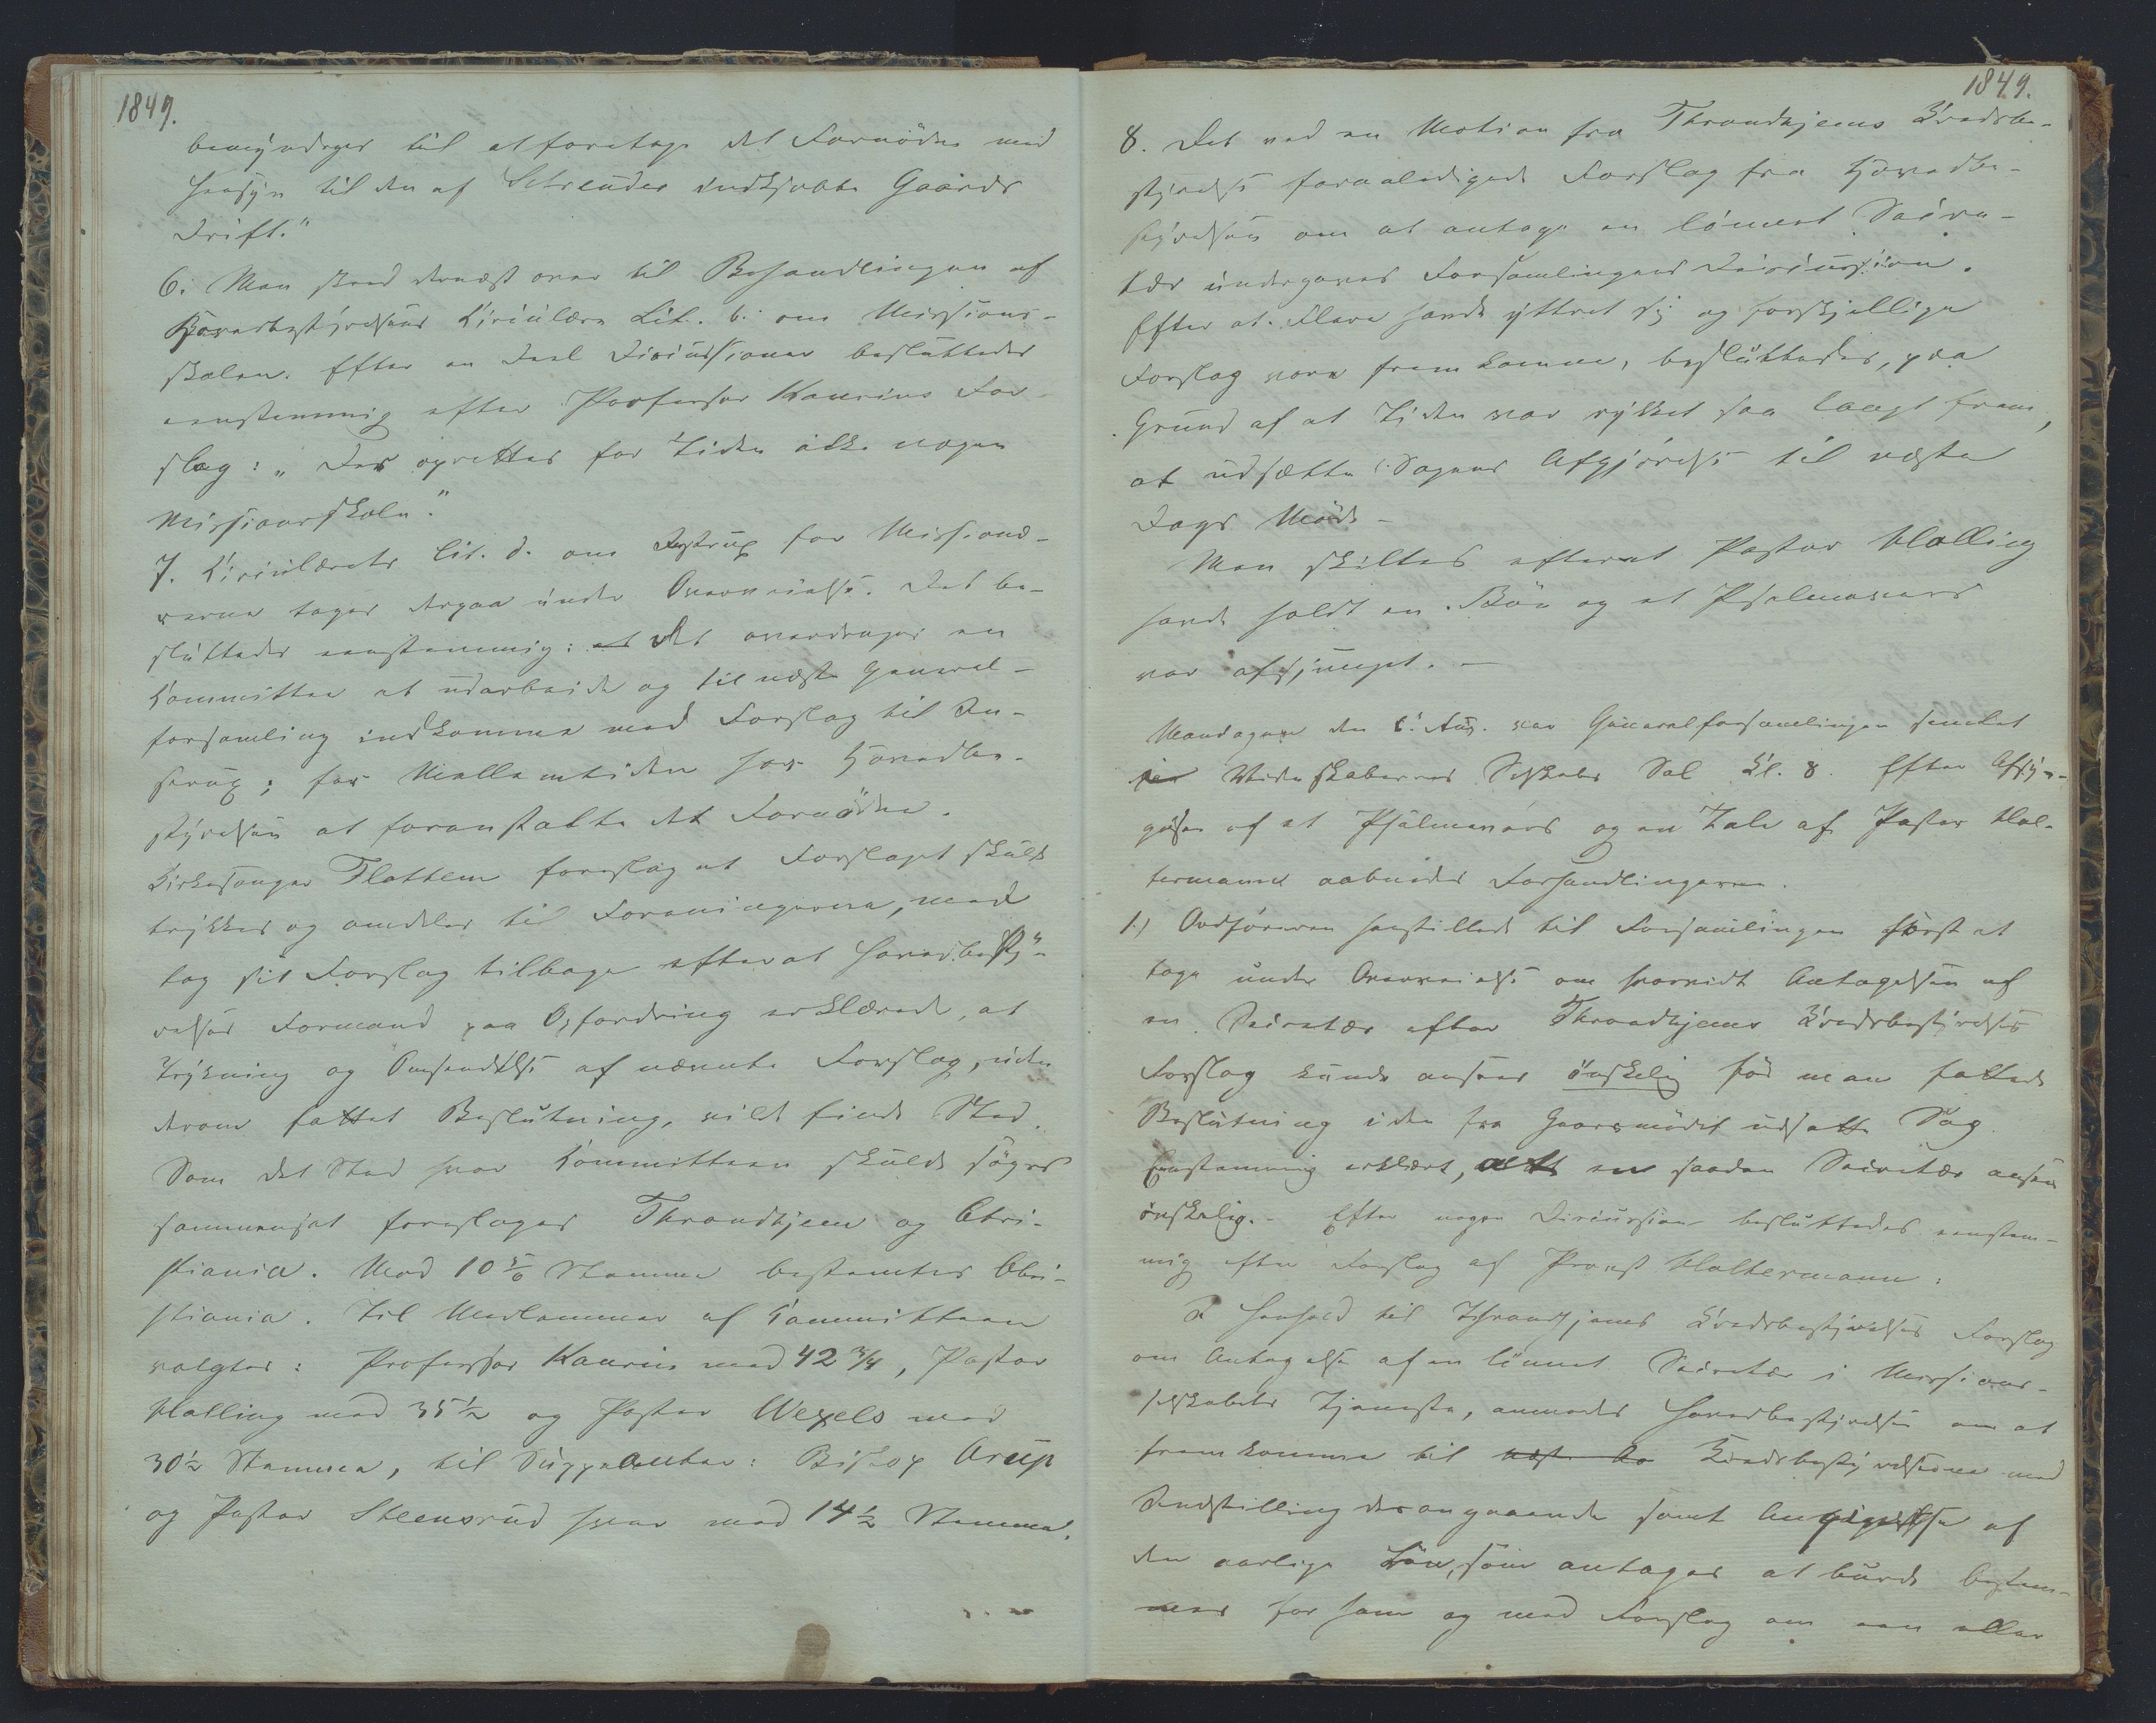 1849.
bemyndiges til at foretage det Fornödne med
Hensyn til den af Schreuder indkjøbte Gaards
Drift."
6. Man skred dernæst over til Behandlingen af
Hovedbestyrelsens Circulære Lit. b. om Missions-
skolen. Efter en Deel Discussioner besluttedes
eenstemmig efter Professor Kaurins For-
slag: „Der oprettes for Tiden ikke nogen
Missionsskole."
7. Circulærets Lit. d. om Instrux for Missionæ-
rerne toges derpaa under Overveielse. Det be-
sluttedes eenstemmig: at det overdrages en
Committee at udarbeide og til næste General-
forsamling indkomme med Forslag til In-
strux; for Mellemtiden har Hovedbe-
styrelsen at foranstalte det Fornödne.
Kirkesanger Flottem foreslog at Forslaget skulde
trykkes og omdeles til Foreningerne, med
tog sit Forslag tilbage efterat Hovedbesty-
relsens Formand paa Opfordring erklærede, at
Trykning og Omsendelse af nævnte Forslag, uden
derom fattet Beslutning, vilde finde Sted.
Som det Sted hvor Committeen skulde søges
sammensat foresloges Throndhjem og Chri-
stiania. Med 10 5/6 Stemme bestemtes Chri-
stiania. Til Medlemmer af Committeen
valgtes: Professor Kaurin med 42 3/4, Pastor
Halling med 35 1/2 og Pastor Wexels med
30 1/2 Stemme, til Suppleanter: Biskop Arup
og Pastor Steensrud hver med 14 1/2 Stemme.
1849.
8. Det ved en Motion fra Throndhjems Kredsbe-
styrelse foranledigede Forslag fra Hovedbe-
styrelsen om at antage en lönnet Secre-
tær undergaves Forsamlingens Discussion.
Efter at Flere havde yttret sig og forskjellige
Forslag vare fremkomne, besluttedes, paa
Grund af at Tiden var rykket saa langt frem,
at udsætte Sagens Afgjørelse til næste
Dags Møde –
Man skiltes efterat Pastor Halling
havde holdt en Bön og et Psalmevers
var afsjunget. –
Mandagen den 6. Aug. var Generalforsamlingen samlet
i Videnskabernes Selskabs Sal Kl. 8. Efter Afsyn-
gelse af et Psalmevers og en Tale af Pastor Hol-
termann aabnedes Forhandlingerne.
1.) Ordføreren henstillede til Forsamlingen først at
tage under Overveielse om hvorvidt Antagelsen af
en Secretær efter Throndhjems Kredsbestyrelses
Forslag kunde ansees önskelig för man fattede
Beslutning i den fra Gaarsmödet udsatte Sag.
Eenstemmig erklært, at en saadan Secretær ansees
önskelig. – Efter nogen Discussion besluttedes eenstem-
mig efter Forslag af Provst Holtermann:
I Henhold til Throndhjems Kredsbestyrelses Forslag
om Antagelse af en lönnet Secretær i Missions-
selskabets Tjeneste, anmodes Hovedbestyrelsen om at
fremkomme til næste Kredsbestyrelserne med
Indstilling desangaaende samt Angivelse af
den aarlige Lön, som antages at burde bestem-
mes for ham og med Forslag om een eller